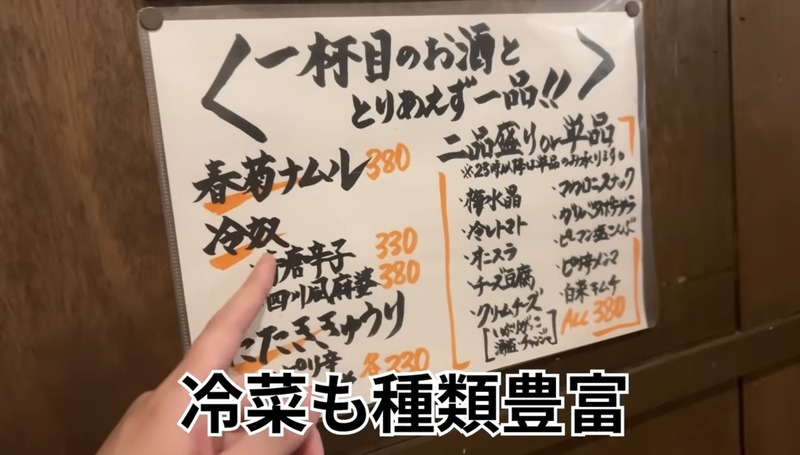 一杯目のお酒と
とりあえず一品!!
春菊ナムル 380
冷奴
青唐辛子 330
四川風麻婆 380
たたききゅうり
ピリ辛
各330
二品盛りor単品
※23時以降は単品のみ承ります。
・梅水晶
・冷しトマト
・オニスラ
・チーズ豆腐
・クリームチーズ
[いぶりがっこ
酒盗 チャンジャ]
・マカロニスナック
・ガリバタポテサラ
・ピーマン塩こんぶ
・ピリ辛メンマ
・白菜キムチ
ALL 380
冷菜も種類豊富